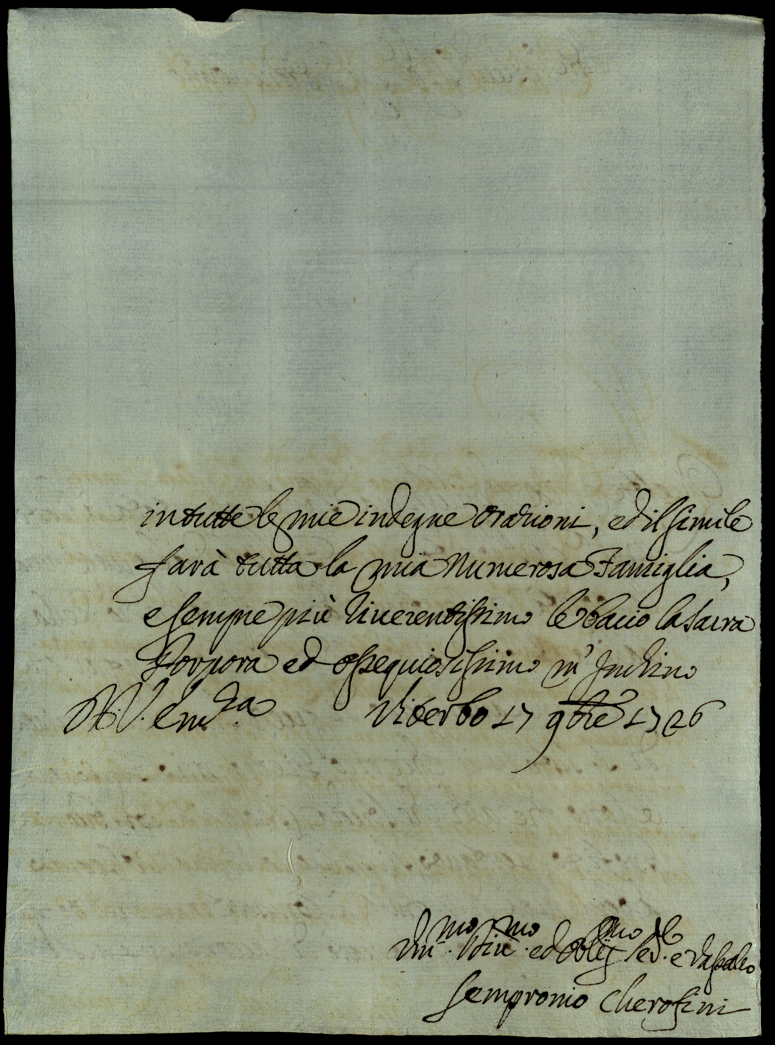 in tutte le mie indegne orazioni, ed il simile
farà tutta la mia Numerosa Famiglia,
e sempre più riuerentissimo le bacio la sacra
Porpora ed ossequiosissimo m'Inchino
D. V. Em.za Viterbo 17 9bre 1726
Vm.mo Diu.mo ed oblig.mo se.re e Vassallo
Sempronio Cherofini